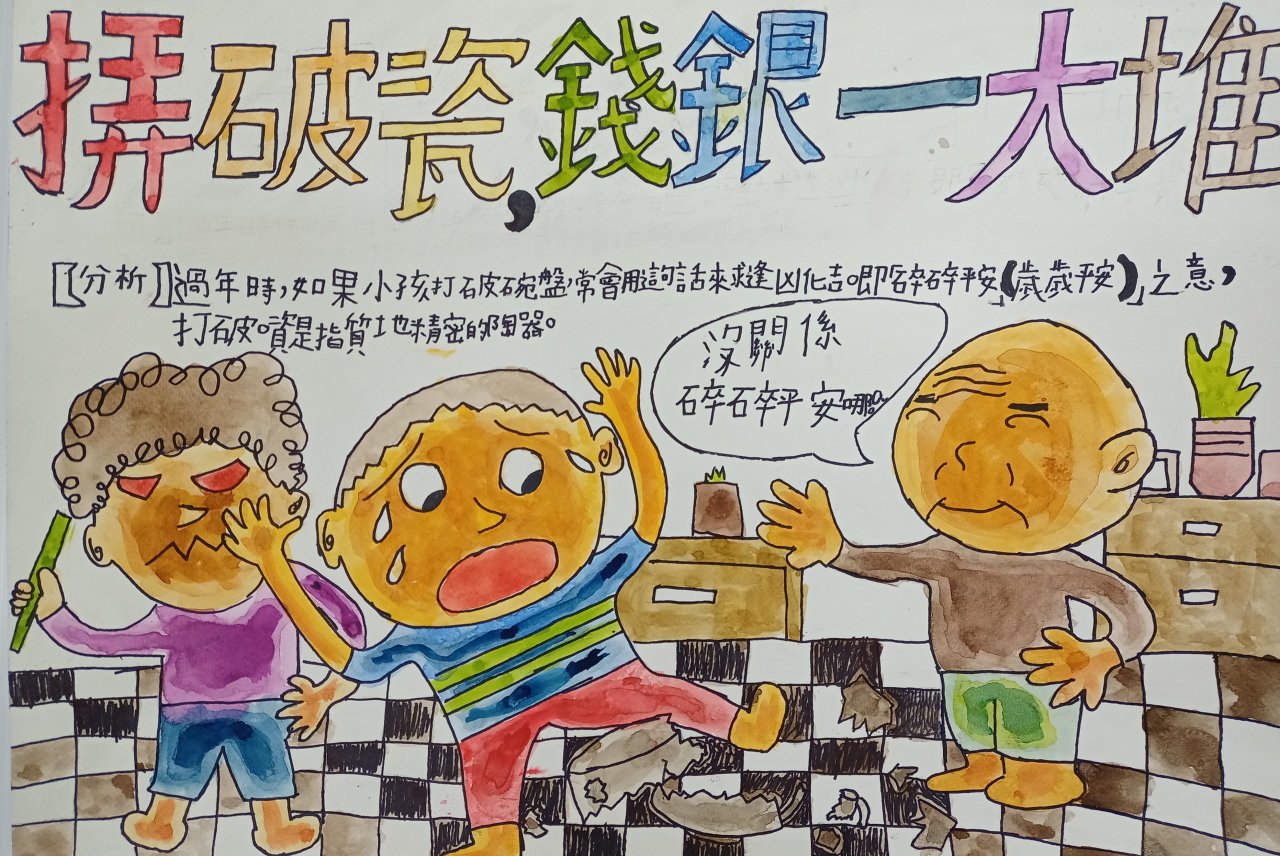 挵破瓷,錢銀一大堆
【分析】過年時,如果小孩打破碗盤,常會用這句話來求逢凶化吉。即「碎碎平安」(歲歲平安)」之意,
打破是指質地精密的陶器。
沒關係
碎碎平安哪。